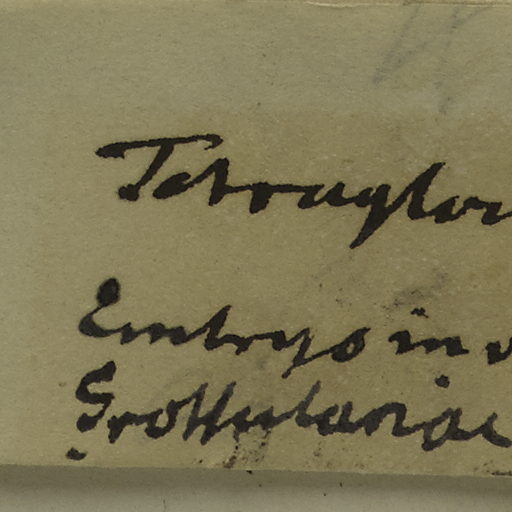 Tetraglos
Embryo in
Grossulariae